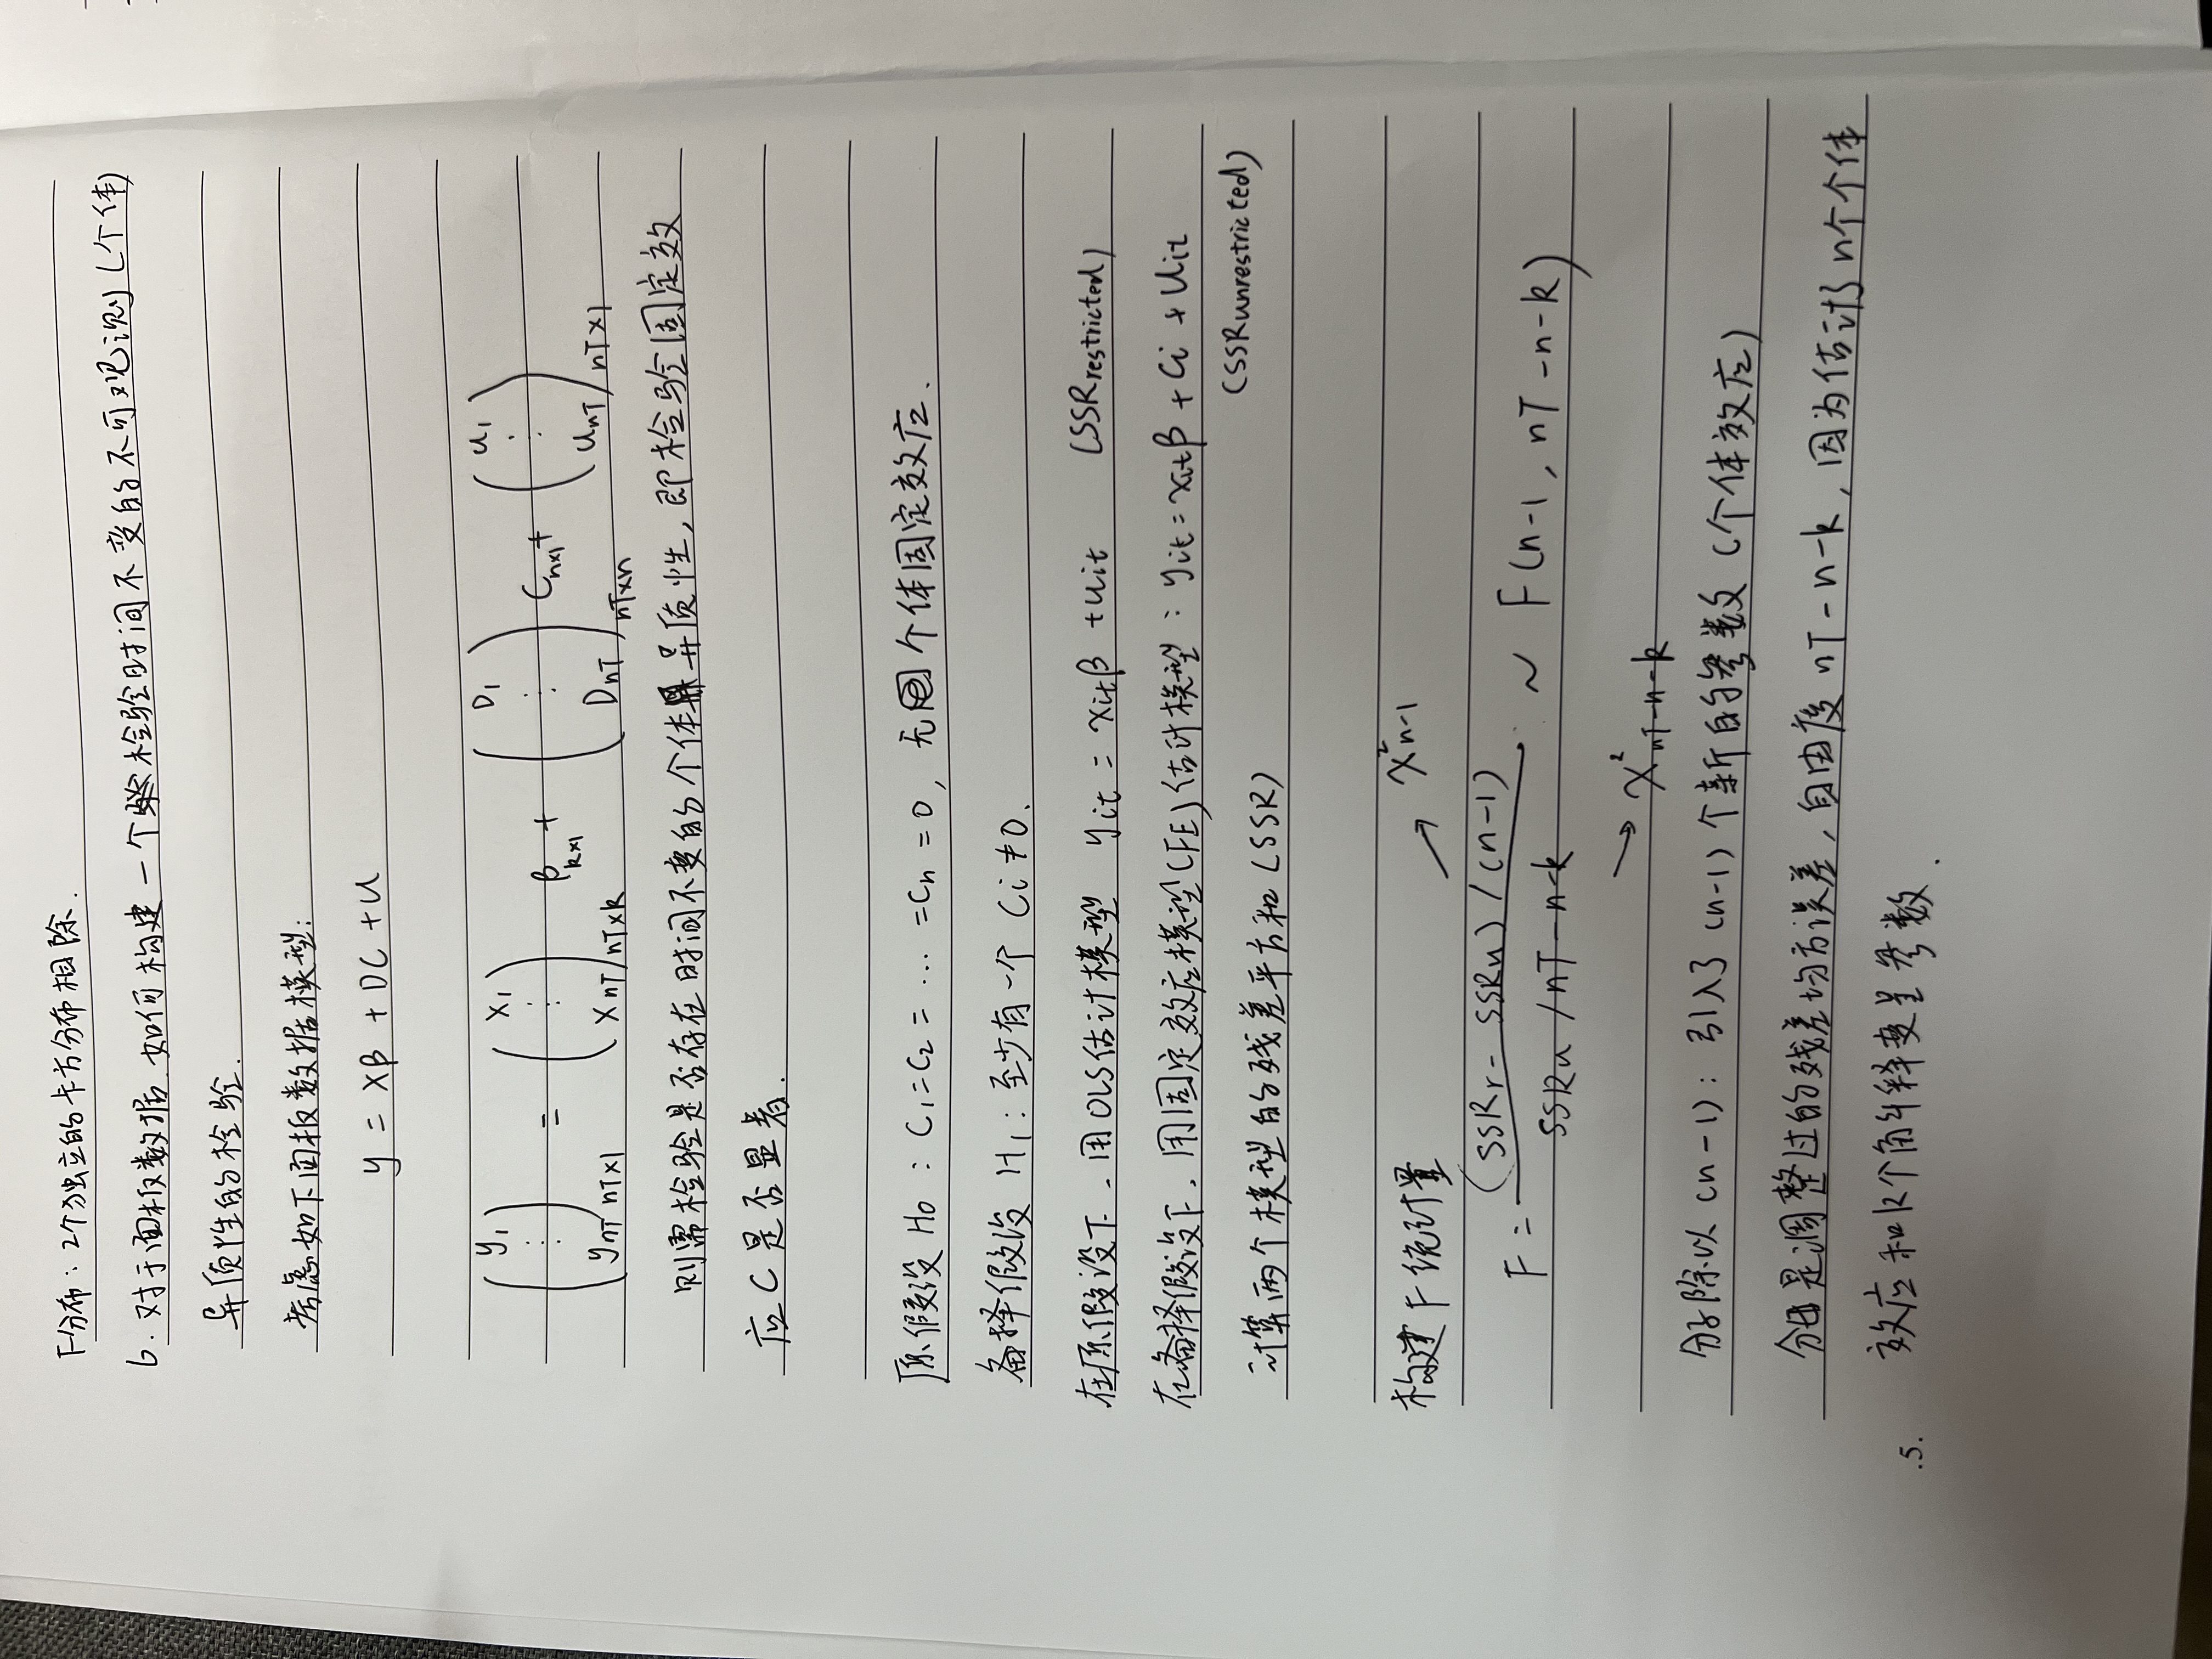 F分布：2个独立的卡方分布相除.
6. 对于面板数据.如何构建一个检验时间不变的不可观测(个体)
异质性的检验.
考虑如下面板数据模型:
y = xβ + DC + u
(y₁ ⋮ ynT)nT×1 = (x₁ ⋮ xnT)nT×k βk×1 + (D₁ ⋮ DnT)nT×n Cn×1 + (u₁ ⋮ unT)nT×1
则需检验是否存在时间不变的个体异质性, 即检验固定效
应C是否显著.
原假设 H₀ : C₁=C₂= … =Cn = 0, 无个体固定效应.
备择假设 H₁: 至少有一个 Ci≠0.
在原假设下、用OLS估计模型 yit = xitβ + uit (SSRrestricted)
在备择假设下、用固定效应模型(FE)估计模型：yit = xitβ + Ci + uit
(SSRunrestricted)
计算两个模型的残差平方和(SSR)
构建F统计量 → χ²n-1
F = (SSRr - SSRu) / (n-1) / SSRu / nT-n-k ~ F(n-1, nT-n-k)
→ χ²nT-n-k
分子除以(n-1)：引入了(n-1)个新的参数(个体效应)
分母是调整过的残差均方误差, 自由度 nT-n-k, 因为估计了n个个体
效应和k个解释变量参数.
.5.